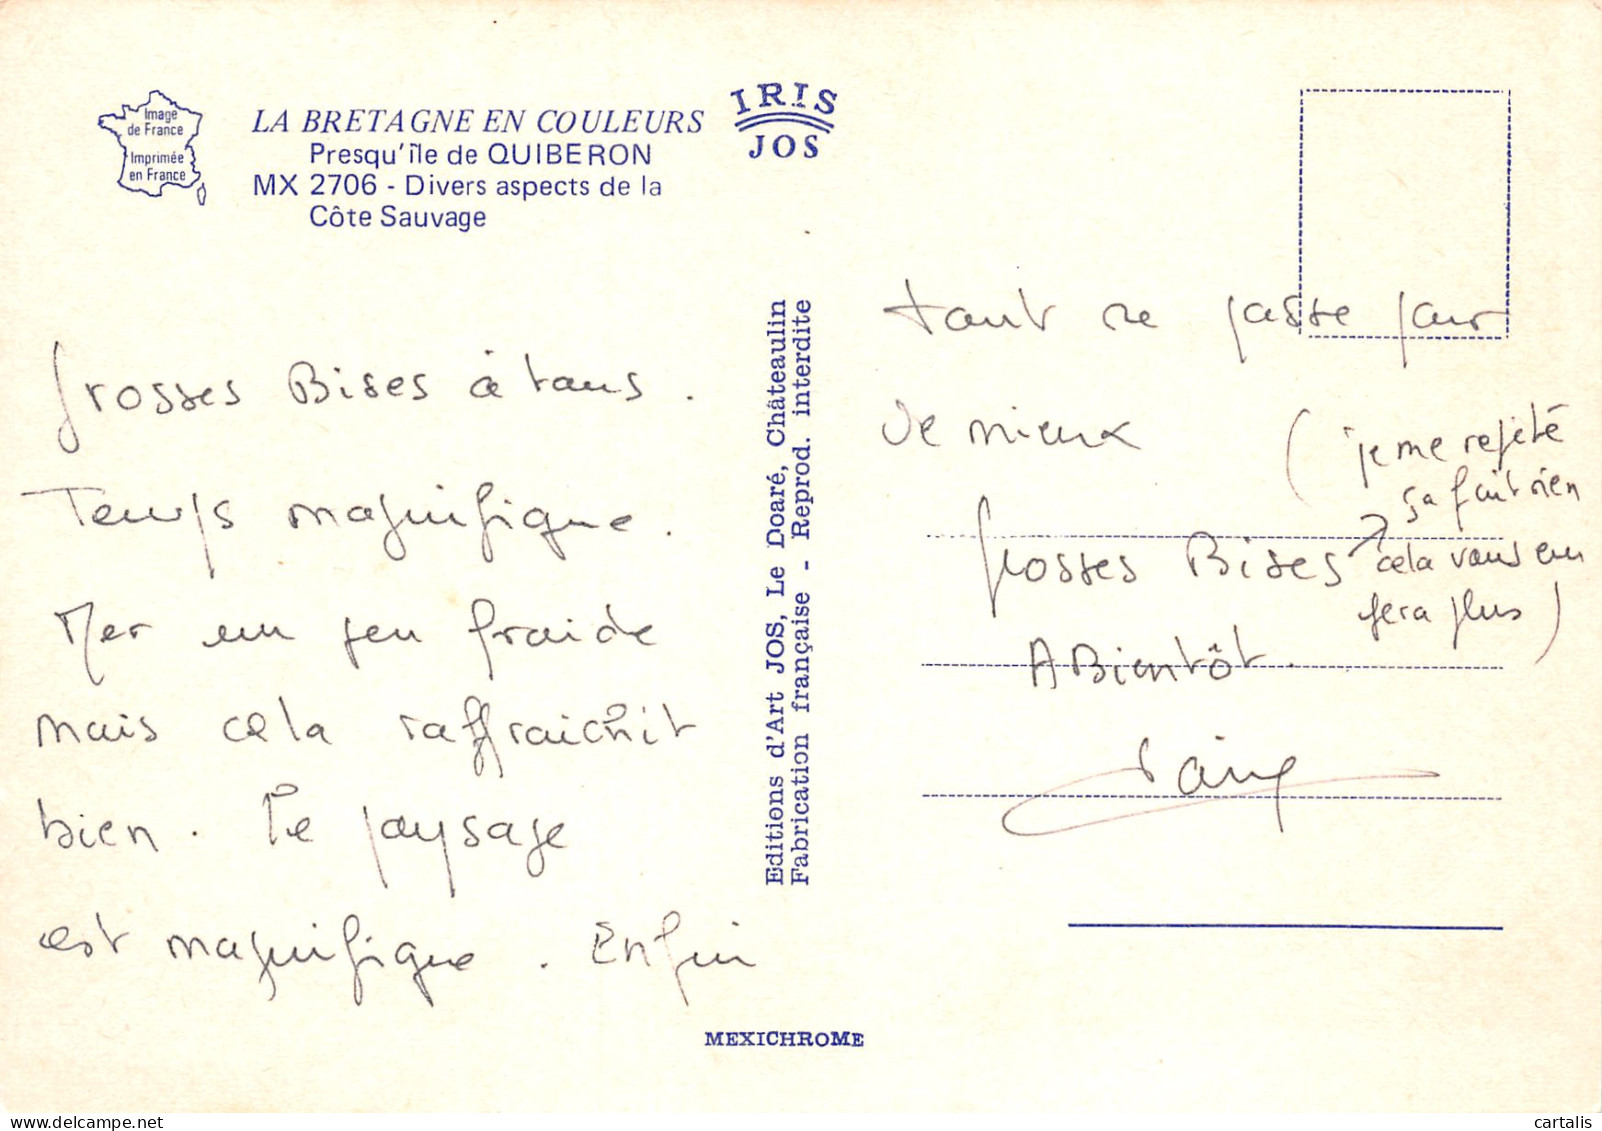 Image
de France
Imprimée
en France
LA BRETAGNE EN COULEURS
Presqu'île de QUIBERON
MX 2706 - Divers aspects de la
Côte Sauvage
IRIS
JOS
Grosses Bises à tous.
Temps magnifique.
Mer un peu froide
mais cela raffraichit
bien. Le paysage
est magnifique. Enfin
Editions d'Art JOS, Le Doaré, Châteaulin
Fabrication française - Reprod. interdite
tout se passe pour
le mieux
Grosses Bises
(je me repète
ça fait rien
cela vous en
fera plus)
A Bientôt.
MEXICHROME
cartalis